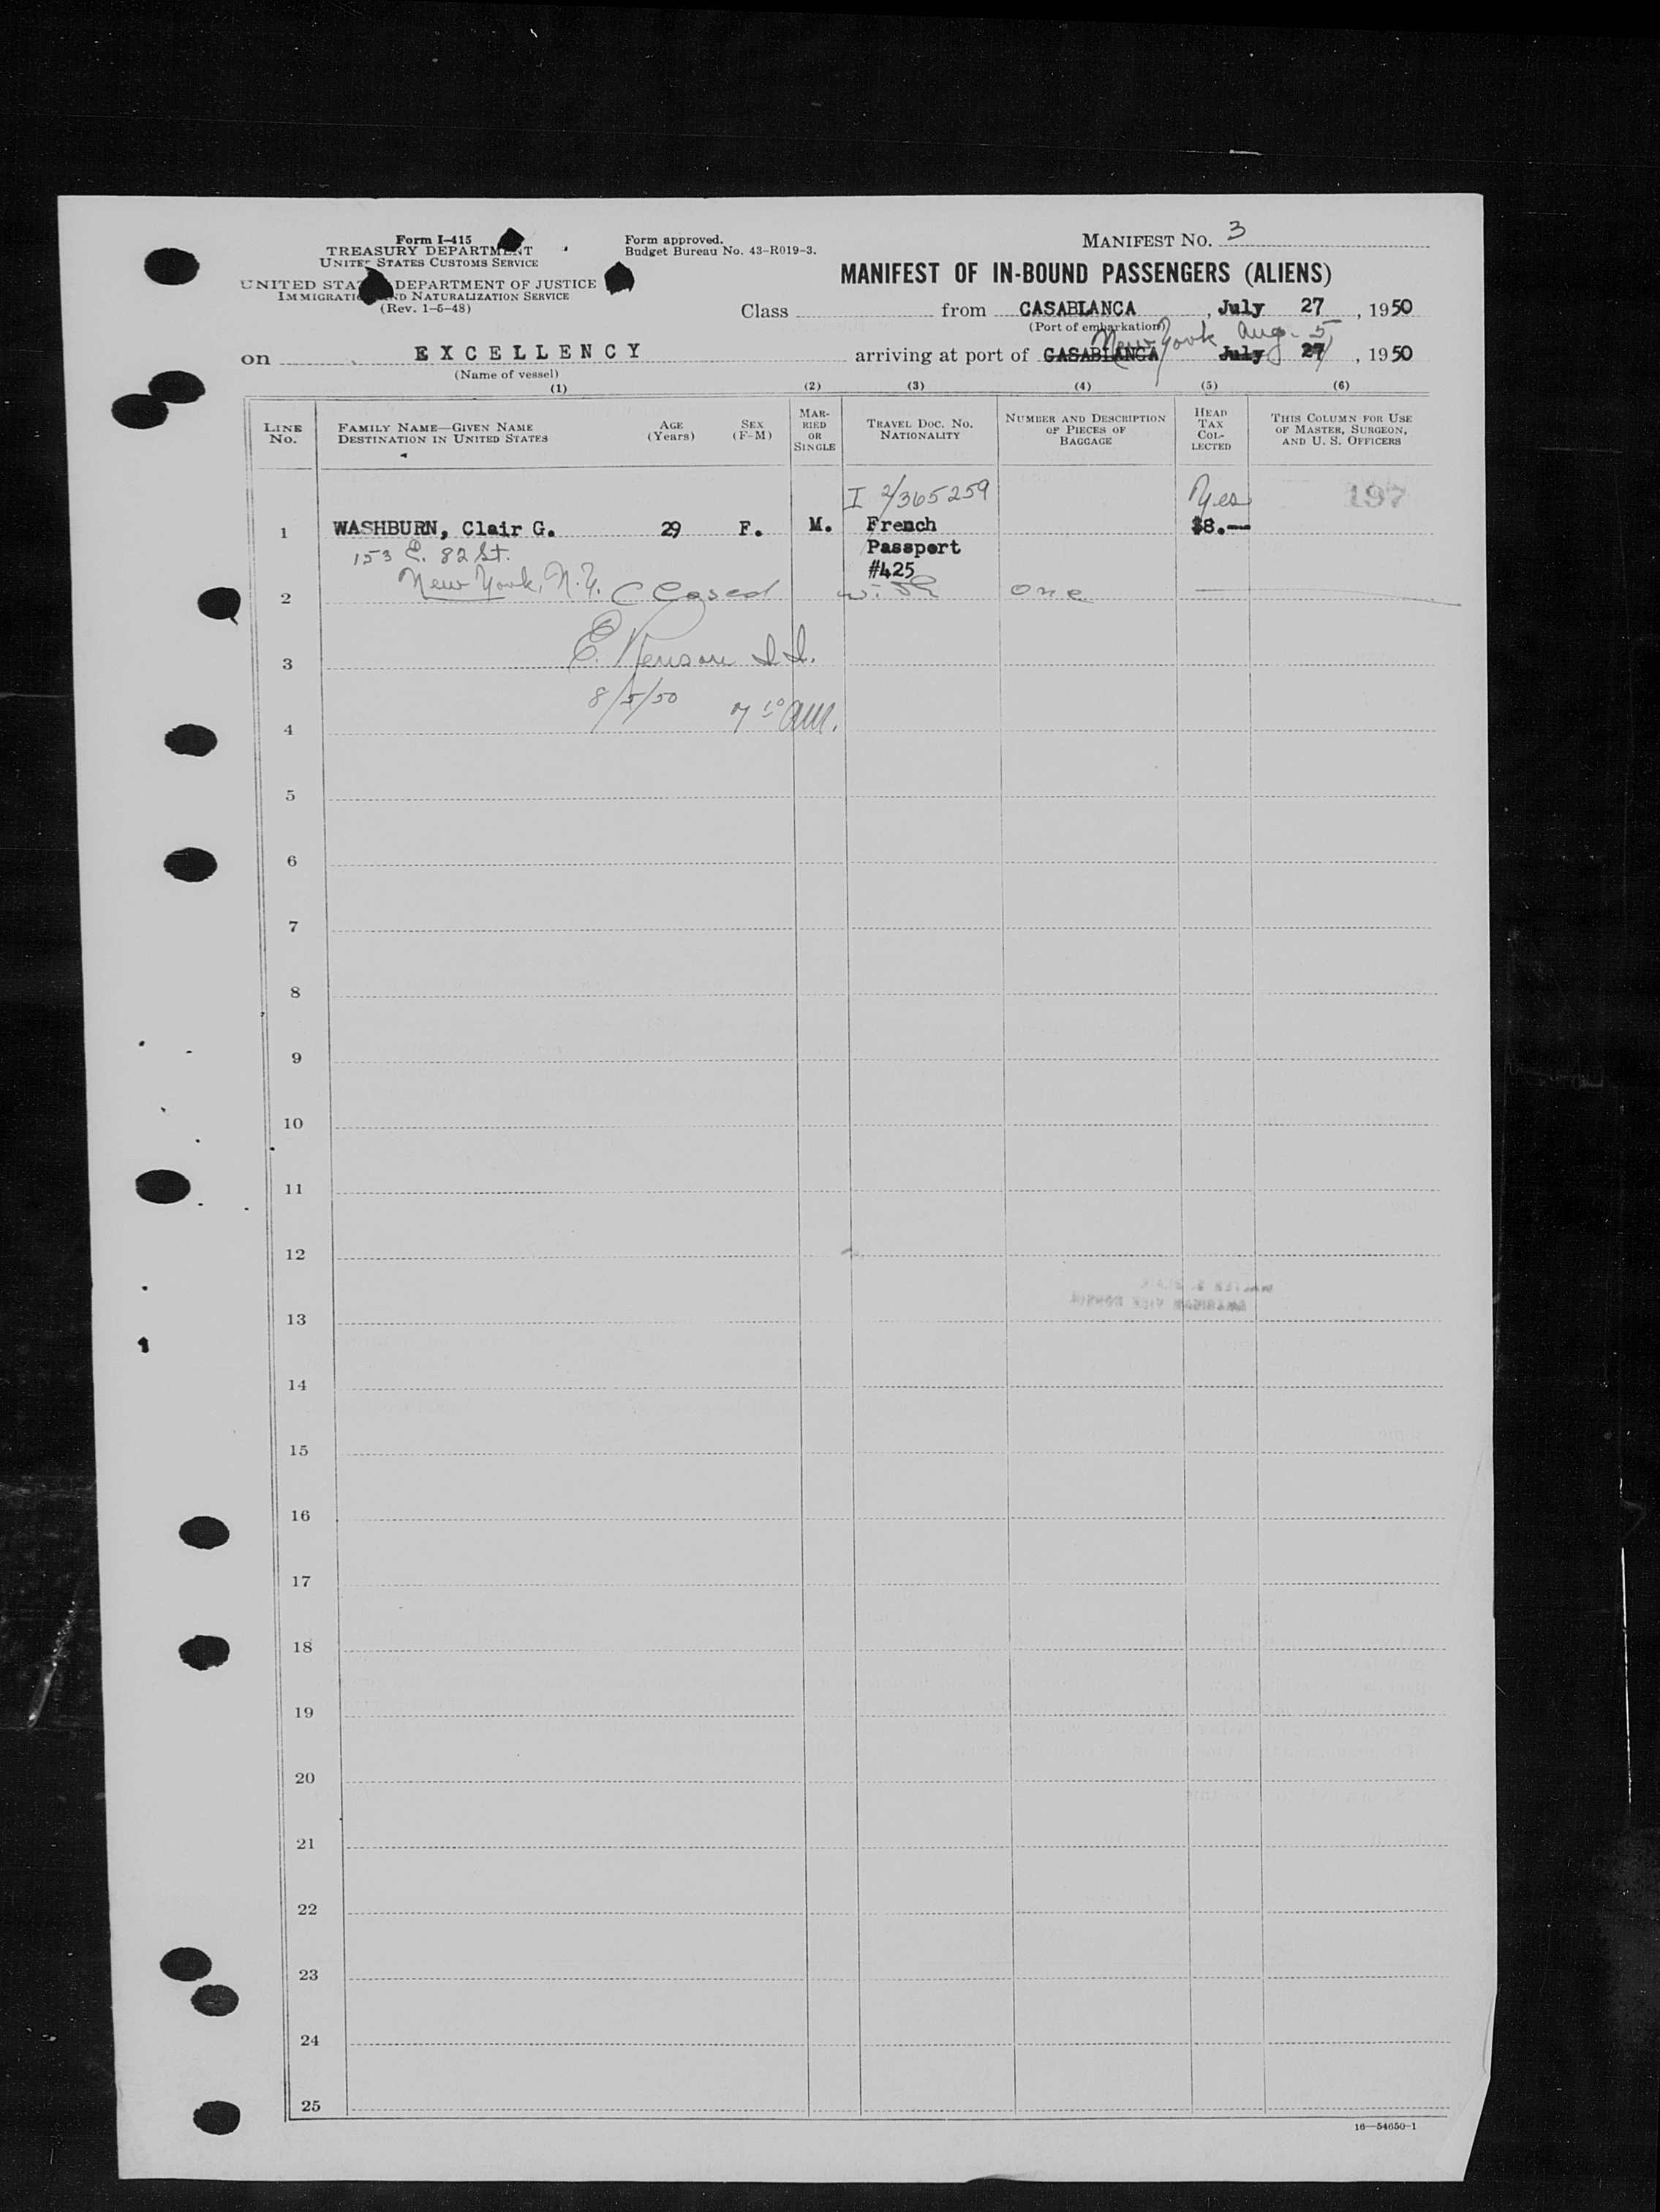 Form I-415
TREASURY DEPARTMENT
UNITED STATES CUSTOMS SERVICE
UNITED STATES DEPARTMENT OF JUSTICE
IMMIGRATION AND NATURALIZATION SERVICE
(Rev. 1-5-48)
Form approved.
Budget Bureau No. 43-R019-3.
MANIFEST No. 3
MANIFEST OF IN-BOUND PASSENGERS (ALIENS)
Class from CASABLANCA, July 27, 1950
(Port of embarkation)
New York Aug. 5
on EXCELLENCY arriving at port of CASABLANCA July 27, 1950
(Name of vessel)
(1) (2) (3) (4) (5) (6)
LINE No.
FAMILY NAME—GIVEN NAME
DESTINATION IN UNITED STATES
AGE (Years)
SEX (F-M)
MARRIED OR SINGLE
TRAVEL DOC. NO. NATIONALITY
NUMBER AND DESCRIPTION OF PIECES OF BAGGAGE
HEAD TAX COLLECTED
THIS COLUMN FOR USE OF MASTER, SURGEON, AND U. S. OFFICERS
I 2/365259 Yes 197
1 WASHBURN, Clair G. 29 F. M. French $8.—
153 E. 82 St. Passport
New York, N.Y. #425
2 Closed with one
3 E.
8/5/50 7 10 AM.
4
5
6
7
8
9
10
11
12
13
14
15
16
17
18
19
20
21
22
23
24
25
16—54650-1